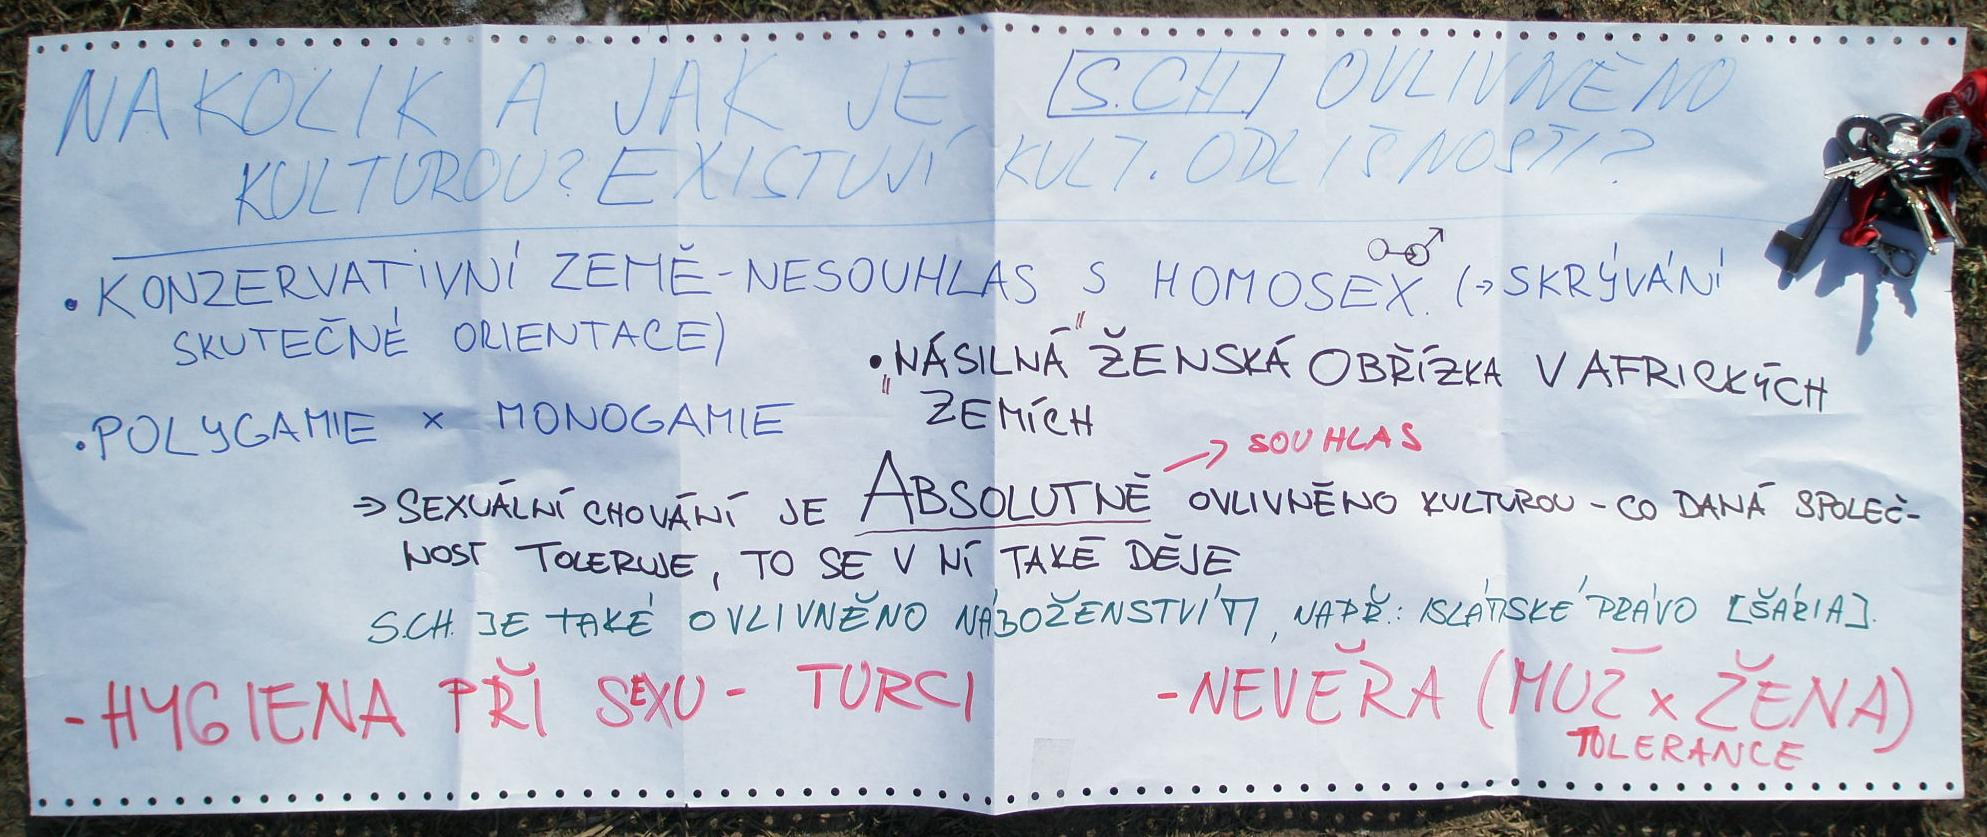 NAKOLIK A JAK JE S.CH OVLIVNĚNO
KULTUROU? EXISTUJÍ KULT. ODLIŠNOSTI?
• KONZERVATIVNÍ ZEMĚ - NESOUHLAS S HOMOSEX. (→ SKRÝVÁNÍ
SKUTEČNÉ ORIENTACE)
• "NÁSILNÁ" ŽENSKÁ OBŘÍZKA V AFRICKÝCH
ZEMÍCH
• POLYGAMIE × MONOGAMIE
→ SOUHLAS
→ SEXUÁLNÍ CHOVÁNÍ JE ABSOLUTNĚ OVLIVNĚNO KULTUROU - CO DANÁ SPOLEČ-
NOST TOLERUJE, TO SE V NÍ TAKÉ DĚJE
S.CH. JE TAKÉ OVLIVNĚNO NÁBOŽENSTVÍM, NAPŘ.: ISLÁMSKÉ PRÁVO [ŠÁRIA].
- HYGIENA PŘI SEXU - TURCI
- NEVĚRA (MUŽ × ŽENA)
TOLERANCE